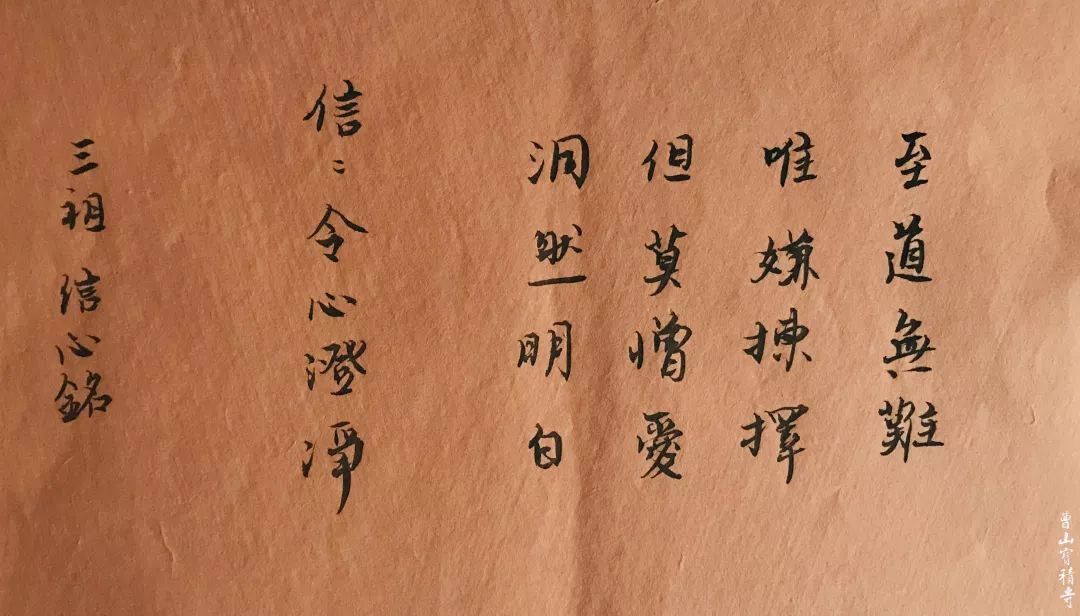 至道無難
唯嫌揀擇
但莫憎愛
洞然明白
信〻令心澄淨
三祖信心銘
曹山寶積寺